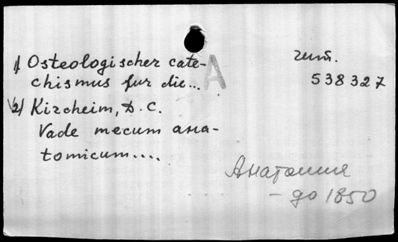 1) Osteologischer cate-
chismus fur die...
2) Kircheim, D. C.
Vade mecum ana-
tomicum....
A
538327
Анатомия
- до 1850